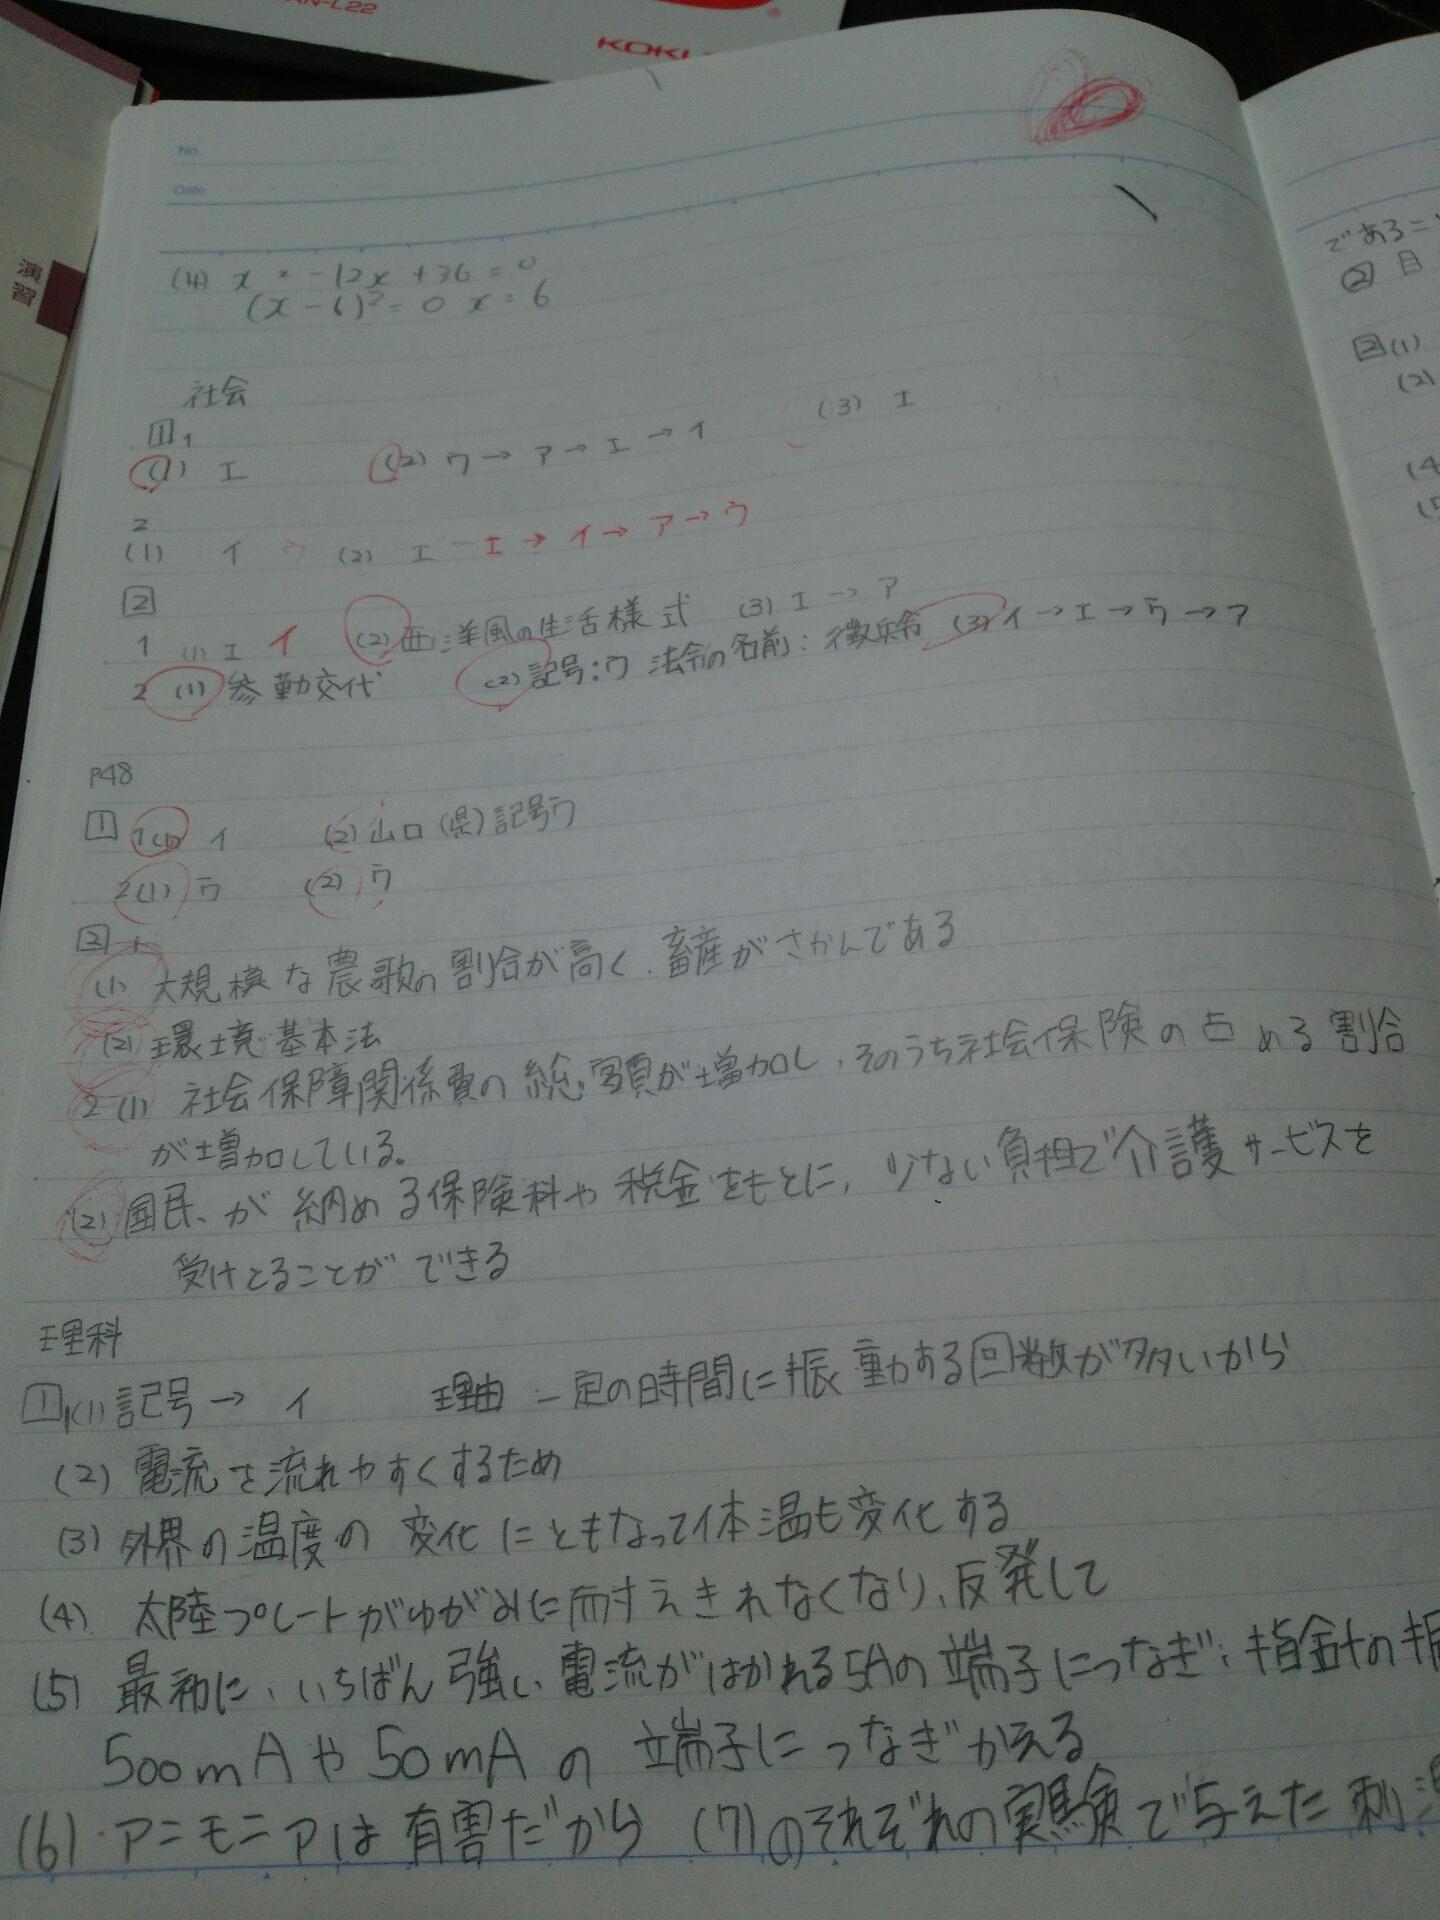 AN-L22
KOKU
演習
No.
Date
(4) x² -12x +36 = 0
(x-6)² = 0 x = 6
社会
1 1
(1) エ (2) ウ→ア→エ→イ (3) エ
2
(1) イ ウ (2) エ エ→イ→ア→ウ
2
1 (1) エ イ (2) 西洋風の生活様式 (3) エ→ア
2 (1) 参勤交代 (2) 記号:ウ 法令の名前:徴兵令 (3) イ→エ→ウ→ア
P48
1 1(1) イ (2) 山口(県)記号ウ
2(1) ウ (2) ウ
2 1
(1) 大規模な農家の割合が高く、畜産がさかんである
(2) 環境基本法
2 (1) 社会保障関係費の総額が増加し、そのうち社会保険の占める割合
が増加している。
(2) 国民が納める保険料や税金をもとに、少ない負担で介護サービスを
受けとることができる
理科
1 1(1) 記号→イ 理由 一定の時間に振動する回数が多いから
(2) 電流を流れやすくするため
(3) 外界の温度の変化にともなって体温も変化する
(4) 大陸プレートがゆがみに耐えきれなくなり、反発して
(5) 最初に、いちばん強い電流がはかれる5Aの端子につなぎ、指針の振
500mAや50mAの端子につなぎかえる
(6) アンモニアは有害だから (7)①それぞれの実験で与えた刺激
である
② 目
2 (1)
(2)
(4
(5